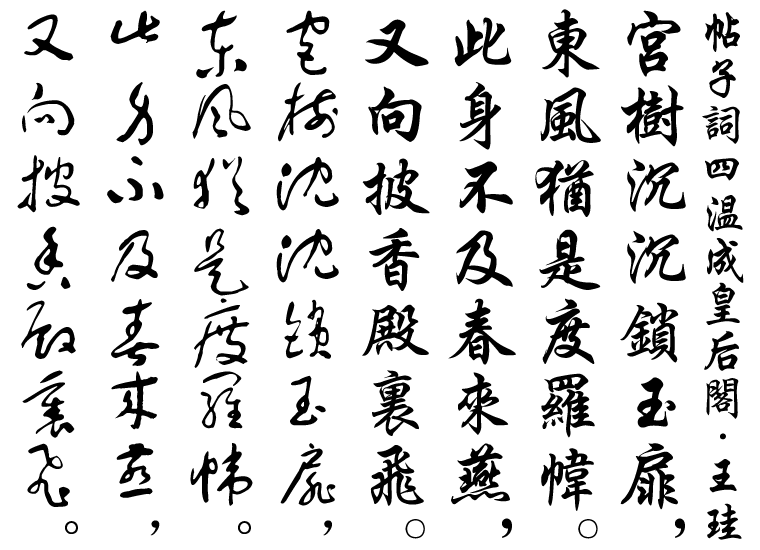 帖子詞四溫成皇后閣·王珪
宮樹沉沉鎖玉扉,
東風猶是度羅幃。
此身不及春來燕,
又向披香殿裏飛。
宮樹沈沈鎖玉扉,
東風猶是度羅幃。
此身不及春來燕,
又向披香殿裏飛。